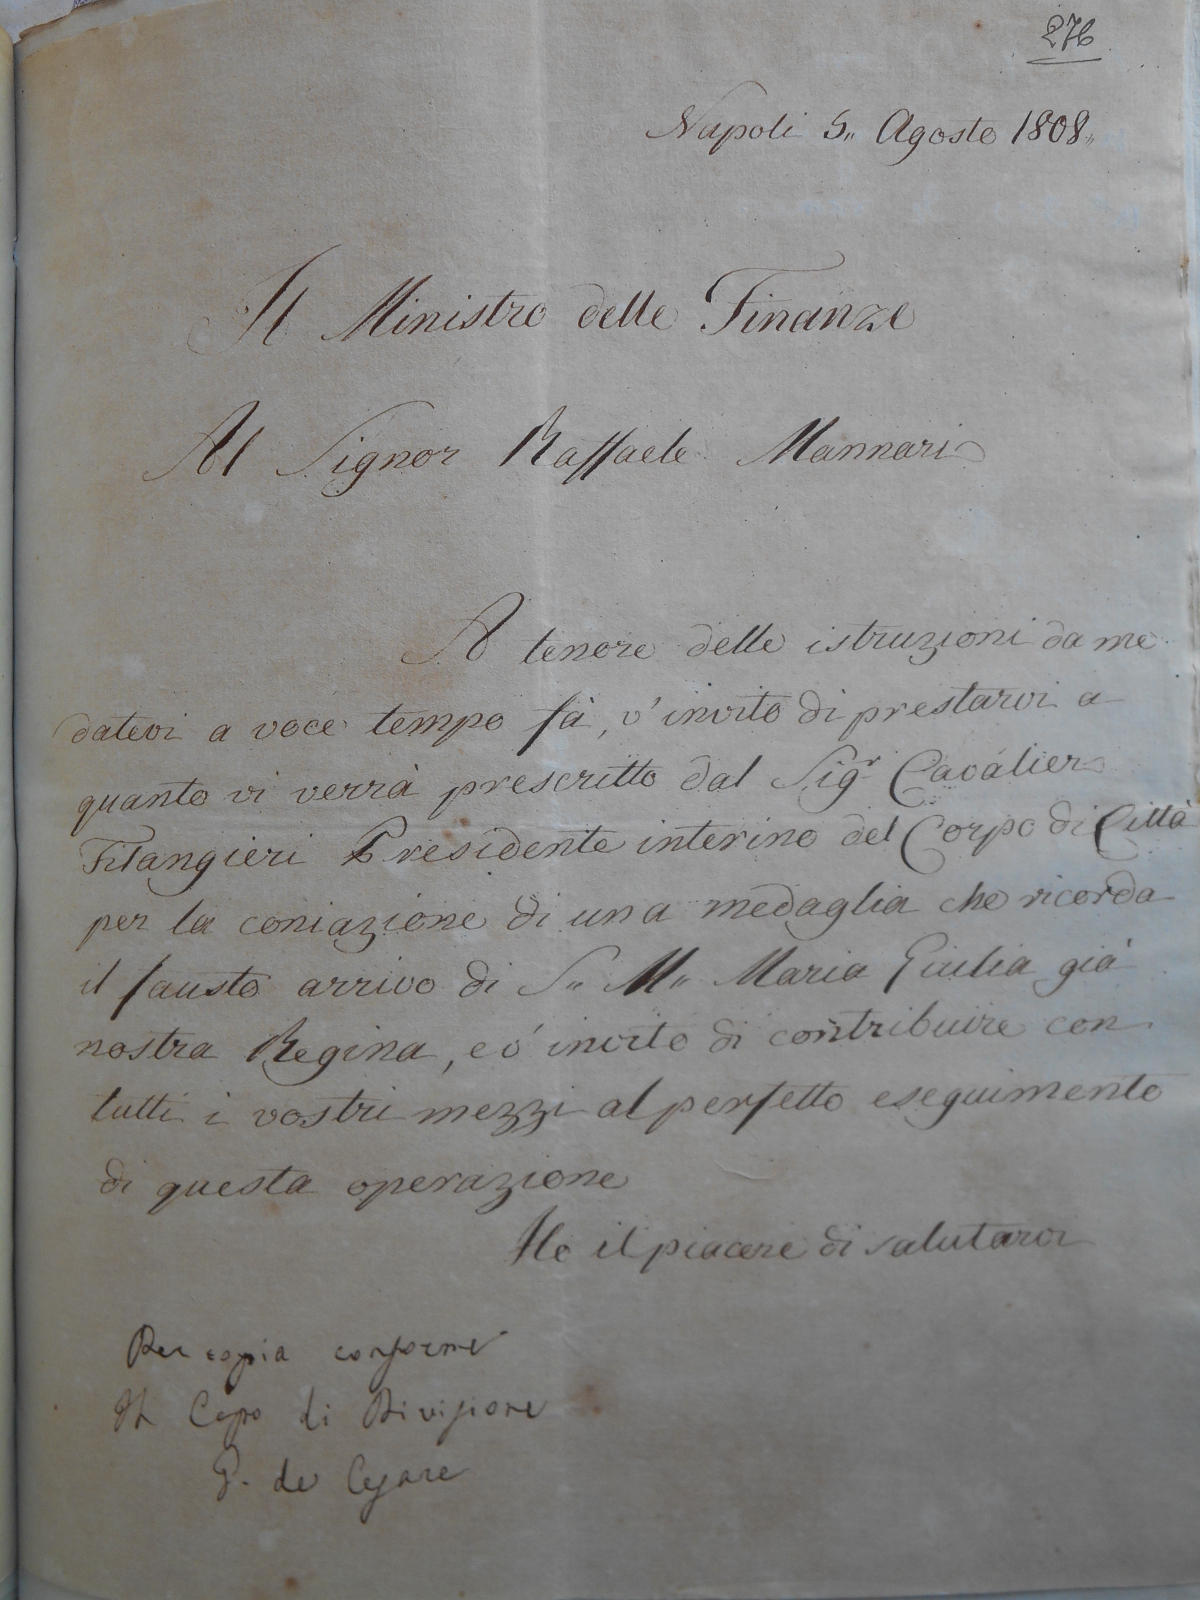 276
Napoli 5,, Agosto 1808,,
Il Ministro delle Finanze
Al Signor Raffaele Mannari
A tenore delle istruzioni da me
datevi a voce tempo fà, v'invito di prestarvi a
quanto vi verrà prescritto dal Sigr Cavalier
Filangieri Presidente interino del Corpo di Città
per la coniazione di una medaglia che ricorda
il fausto arrivo di S,, M,, Maria Giulia già
nostra Regina, e v'invito di contribuire con
tutti i vostri mezzi al perfetto eseguimento
di questa operazione
Ho il piacere di salutarvi
Per copia conforme
Il Capo di Divisione
G. de Cesare